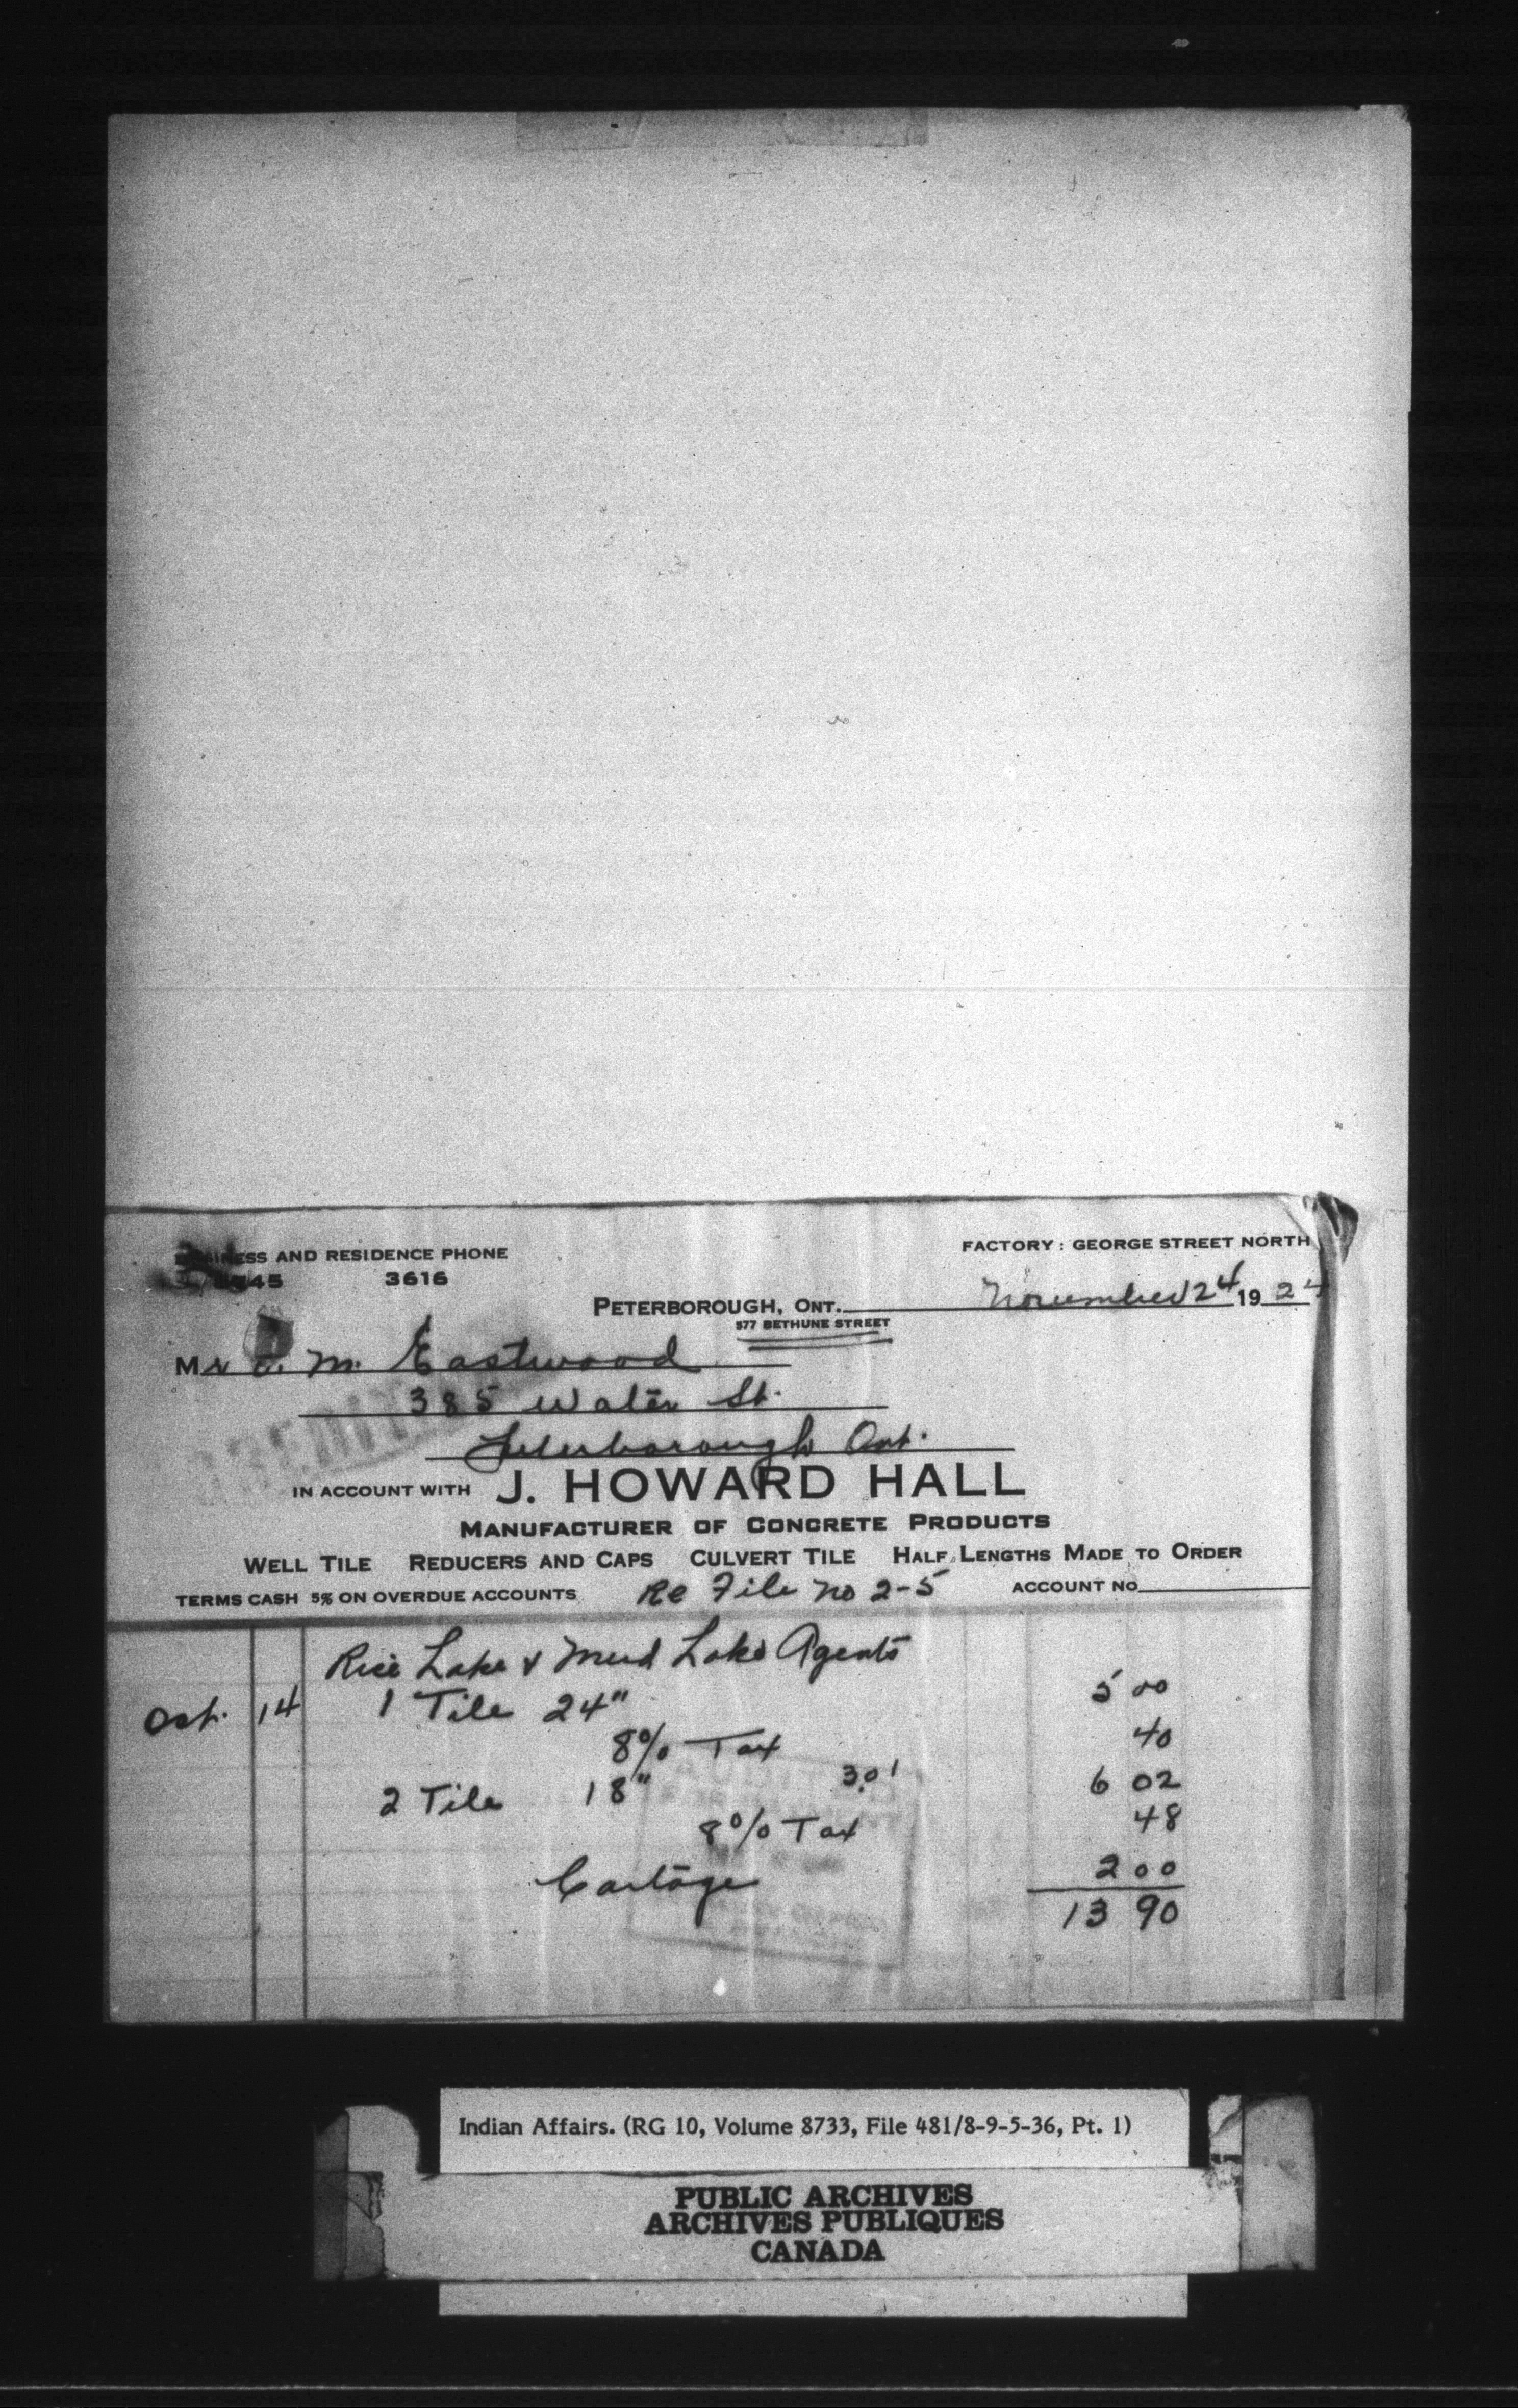 BUSINESS AND RESIDENCE PHONE
3616
FACTORY: GEORGE STREET NORTH
PETERBOROUGH, ONT. November 24 1924
577 BETHUNE STREET
Mr M. Eastwood
385 Water St.
Peterborough Ont.
IN ACCOUNT WITH J. HOWARD HALL
MANUFACTURER OF CONCRETE PRODUCTS
WELL TILE REDUCERS AND CAPS CULVERT TILE HALF LENGTHS MADE TO ORDER
TERMS CASH 5% ON OVERDUE ACCOUNTS Re File no 2-5 ACCOUNT NO
Rice Lake & Mud Lake Agents
Oct. 14 1 Tile 24" 5 00
8% Tax 40
2 Tile 18" 3.01 6 02
8% Tax 48
Cartage 2 00
13 90
Indian Affairs. (RG 10, Volume 8733, File 481/8-9-5-36, Pt. 1)
PUBLIC ARCHIVES
ARCHIVES PUBLIQUES
CANADA